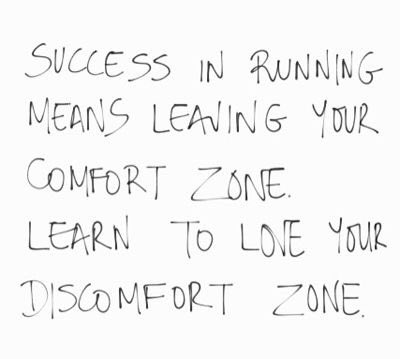 SUCCESS IN RUNNING
MEANS LEAVING YOUR
COMFORT ZONE.
LEARN TO LOVE YOUR
DISCOMFORT ZONE.